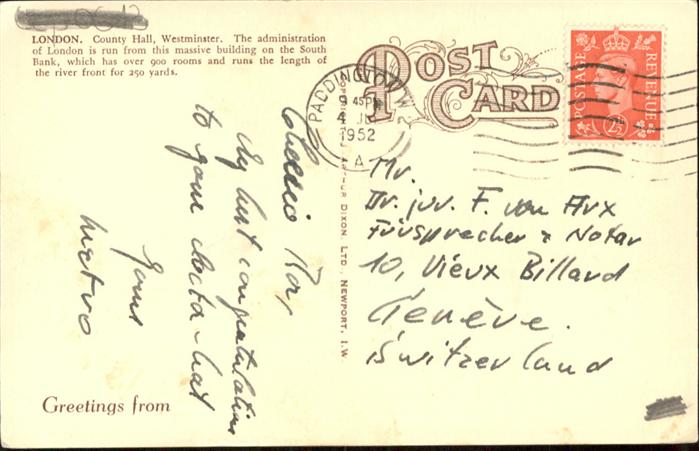 LONDON. County Hall, Westminster. The administration
of London is run from this massive building on the South
Bank, which has over 900 rooms and runs the length of
the river front for 250 yards.
POST
CARD
PADDINGTON
9 45 PM
4 JU
1952
A
POSTAGE
REVENUE
2½
ARTHUR DIXON LTD., NEWPORT, I.W.
Mr.
Dr. jur. F. von Arx
Fürsprecher & Notar
10, Vieux Billard
Genève.
Switzerland
My best congratulations
to your doctor-hat
Yours
Greetings from